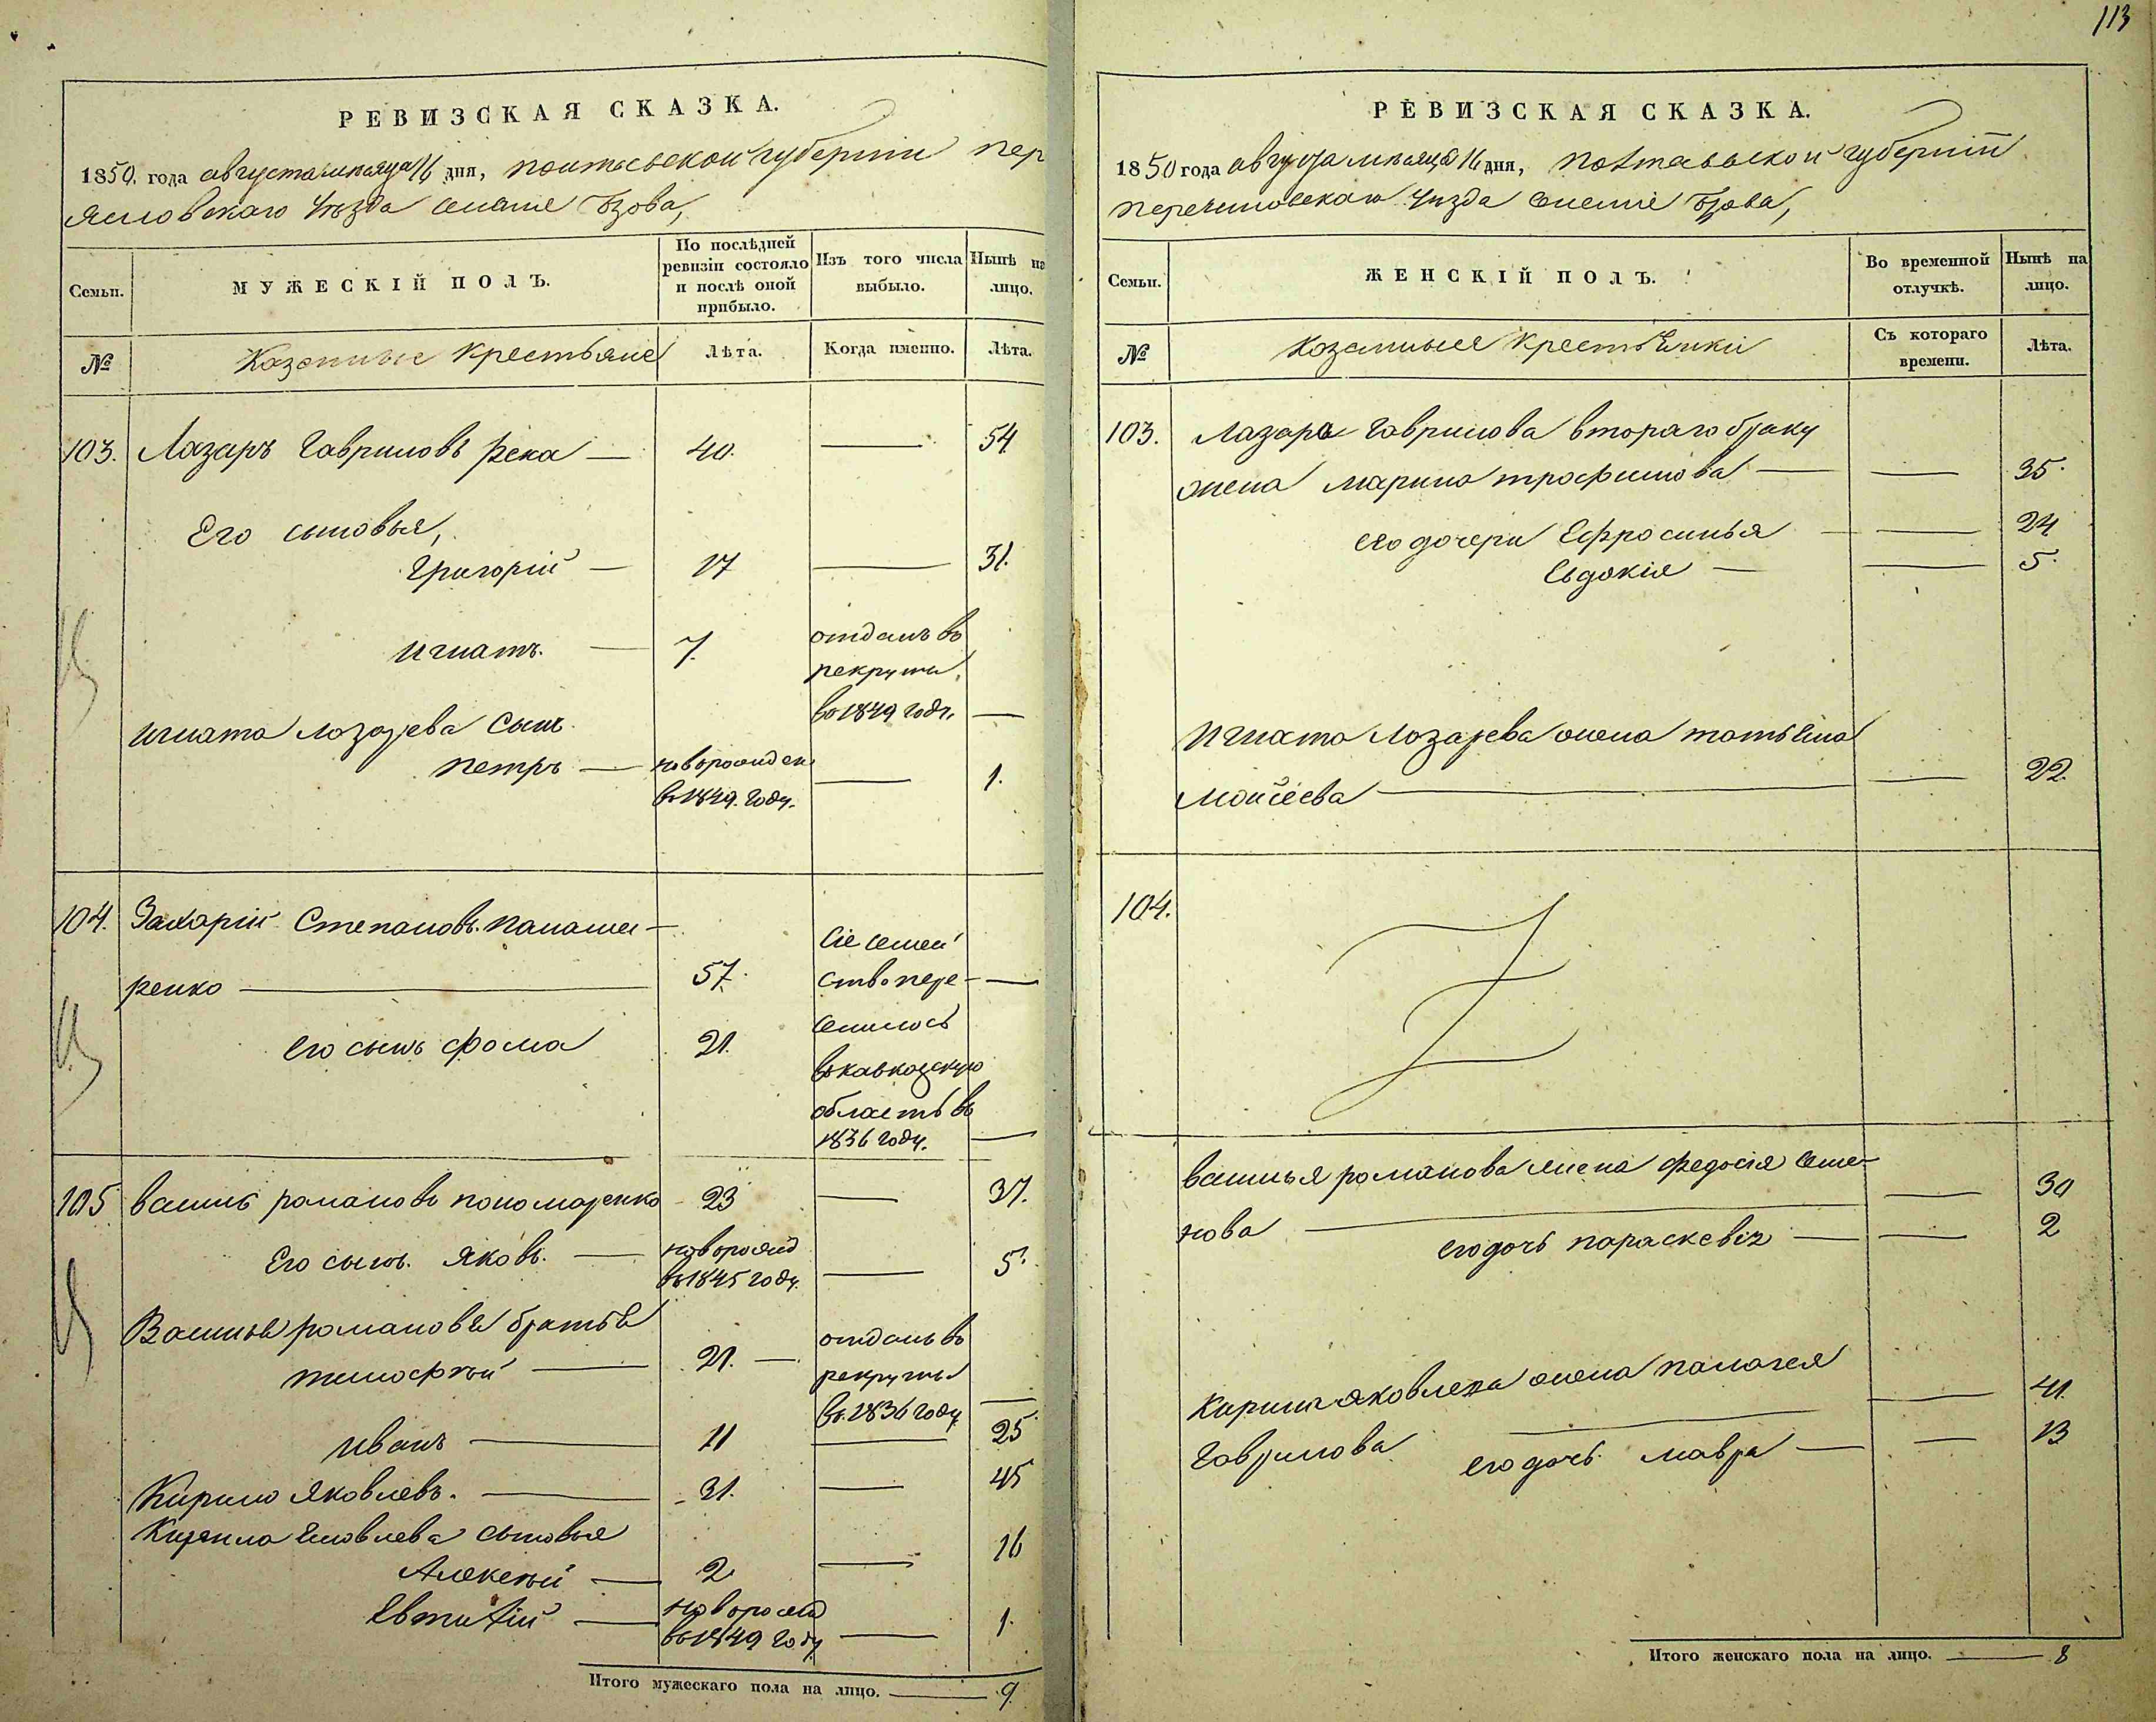 113
РЕВИЗСКАЯ СКАЗКА.
1850. года августа месяца 16 дня, Полтавской губернии Пер
яславского уѣзда селенiе Бзова,
Семьи.
МУЖЕСКІЙ ПОЛЪ.
По послѣдней ревизіи состояло и послѣ оной прибыло.
Изъ того числа выбыло.
Нынѣ на лицо.
№
Казенные крестьяне
Лѣта.
Когда именно.
Лѣта.
103. Лазаръ Гавриловъ Река — 40. — 54
Его сыновья,
Григорій — 17 — 31.
Игнатъ. — 7. отданъ въ
рекруты
въ 1849 году. —
Игната Лазарева сынъ
Петръ — новорожден
въ 1849. году. — 1.
104. Захарій Степановъ Панаше-
ренко — 57. Сіе семей
ство пере- —
его сынъ Фома 21. селилось
въ кавказскую
область въ
1836 году. —
105 Василь Романовъ Пономаренко - 23 — 37.
Его сынъ. Яковъ. — новорожд
въ 1845 году. — 5.
Василья Романова братья
Тимофѣй — 21. — отданъ въ
рекруты
въ 1836 году —
Иванъ — 11 — 25
Кирило Яковлевъ. — 31. — 45
Кирила Яковлева сыновья
Алексѣй — 2 — 16
Евтихій — новорожд
въ 1849 году — 1.
Итого мужескаго пола на лицо. — 9.
РЕВИЗСКАЯ СКАЗКА.
1850 года августа месяца 16 дня, Полтавской губерніи
Переяславскаго уѣзда селеніе Бзова,
Семьи.
ЖЕНСКІЙ ПОЛЪ.
Во временной отлучкѣ.
Нынѣ на лицо.
№
Казенныя крестьянки
Съ котораго времени.
Лѣта.
103. Лазара Гаврилова втораго браку
жена Марина Трофимова — — 35.
его дочери Ефросинья — — 24
Евдокія — — 5.
Игната Лазарева жена Татьяна
Моисеева — — 22.
104.
Василья Романова жена Федосія Семе-
нова — — 30
его дочь Параскевія — — 2
Кирила Яковлева жена Палагея
Гаврилова — — 41.
его дочь Мавра — — 13
Итого женскаго пола на лицо. — 8